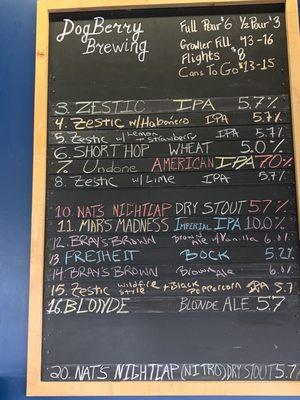 DogBerry
Brewing
Full Pour $6 1/2 Pour $3
Growler Fill $13-16
Flights $
Cans To Go $13-15
3. ZESTIC IPA 5.7%
4. Zestic w/ Habañero IPA 5.7%
5. Zestic w/ Lemon + Strawberry IPA 5.7%
6. SHORT HOP WHEAT 5.0%
7. Undone AMERICAN IPA 7.0%
8. Zestic w/ LIME IPA 5.7%
10. NATS NIGHTLAP DRY STOUT 5.7%
11. MARS MADNESS IMPERIAL IPA 10.0%
12. BRAY'S BROWN Brown Ale + Vanilla 6.0%
13 FREIHEIT BOCK 5.2%
14. BRAY'S BROWN Brown Ale 6.0%
15. Zestic wildfire style + Black Peppercorn IPA 5.7
16. BLONDE BLONDE ALE 5.7
20. NATS NIGHTLAP (NITRO) DRY STOUT 5.7%